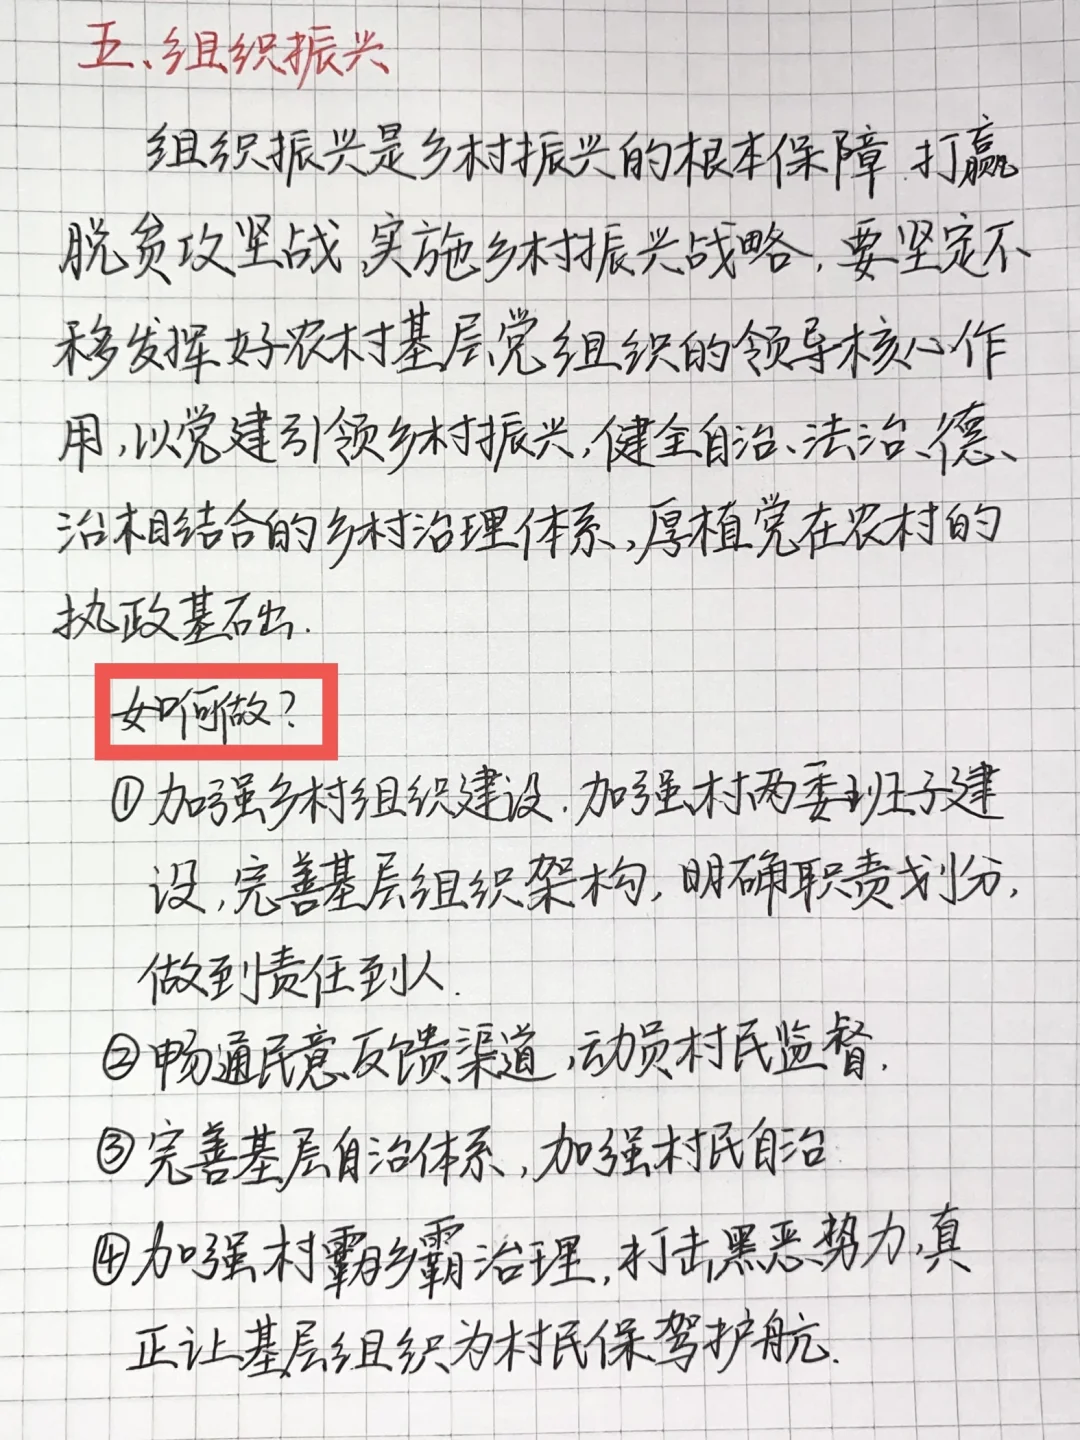 五、组织振兴
组织振兴是乡村振兴的根本保障.打赢
脱贫攻坚战,实施乡村振兴战略,要坚定不
移发挥好农村基层党组织的领导核心作
用,以党建引领乡村振兴,健全自治、法治、德、
治相结合的乡村治理体系,厚植党在农村的
执政基础.
如何做?
①加强乡村组织建设.加强村两委班子建
设,完善基层组织架构,明确职责划分,
做到责任到人.
②畅通民意反馈渠道,动员村民监督.
③完善基层自治体系,加强村民自治
④加强村霸乡霸治理,打击黑恶势力,真
正让基层组织为村民保驾护航.